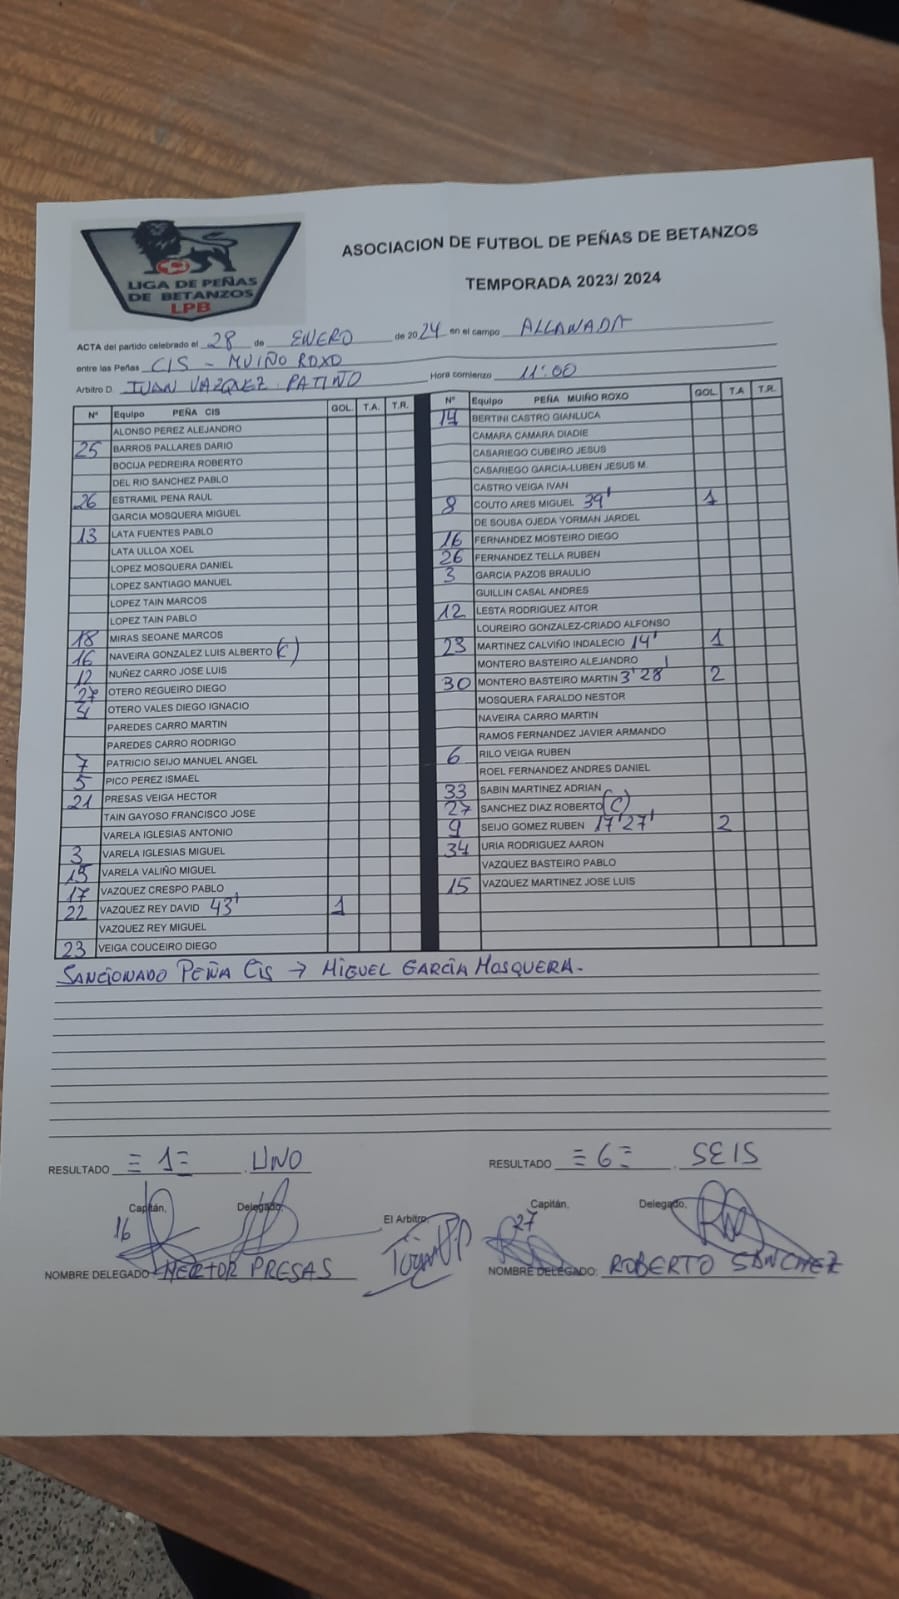 LIGA DE PEÑAS
DE BETANZOS
LPB
ASOCIACION DE FUTBOL DE PEÑAS DE BETANZOS
TEMPORADA 2023/ 2024
ACTA del partido celebrado el 28 de ENERO de 2024 en el campo ALLANADA
entre las Peñas CIS - MUIÑO ROXO
Arbitro D. IVAN VAZQUEZ PATIÑO Hora comienzo 11:00
Nº Equipo PEÑA CIS GOL. T.A. T.R.
ALONSO PEREZ ALEJANDRO
25 BARROS PALLARES DARIO
BOCIJA PEDREIRA ROBERTO
DEL RIO SANCHEZ PABLO
26 ESTRAMIL PENA RAUL
GARCIA MOSQUERA MIGUEL
13 LATA FUENTES PABLO
LATA ULLOA XOEL
LOPEZ MOSQUERA DANIEL
LOPEZ SANTIAGO MANUEL
LOPEZ TAIN MARCOS
LOPEZ TAIN PABLO
18 MIRAS SEOANE MARCOS
16 NAVEIRA GONZALEZ LUIS ALBERTO (C)
12 NUÑEZ CARRO JOSE LUIS
27 OTERO REGUEIRO DIEGO
OTERO VALES DIEGO IGNACIO
PAREDES CARRO MARTIN
PAREDES CARRO RODRIGO
7 PATRICIO SEIJO MANUEL ANGEL
5 PICO PEREZ ISMAEL
21 PRESAS VEIGA HECTOR
TAIN GAYOSO FRANCISCO JOSE
VARELA IGLESIAS ANTONIO
3 VARELA IGLESIAS MIGUEL
15 VARELA VALIÑO MIGUEL
17 VAZQUEZ CRESPO PABLO
22 VAZQUEZ REY DAVID 43' 1
VAZQUEZ REY MIGUEL
23 VEIGA COUCEIRO DIEGO
Nº Equipo PEÑA MUIÑO ROXO GOL. T.A T.R.
14 BERTINI CASTRO GIANLUCA
CAMARA CAMARA DIADIE
CASARIEGO CUBEIRO JESUS
CASARIEGO GARCIA-LUBEN JESUS M.
CASTRO VEIGA IVAN
8 COUTO ARES MIGUEL 39' 1
DE SOUSA OJEDA YORMAN JARDEL
16 FERNANDEZ MOSTEIRO DIEGO
26 FERNANDEZ TELLA RUBEN
3 GARCIA PAZOS BRAULIO
GUILLIN CASAL ANDRES
12 LESTA RODRIGUEZ AITOR
LOUREIRO GONZALEZ-CRIADO ALFONSO
23 MARTINEZ CALVIÑO INDALECIO 14' 1
MONTERO BASTEIRO ALEJANDRO
30 MONTERO BASTEIRO MARTIN 3' 28' 2
MOSQUERA FARALDO NESTOR
NAVEIRA CARRO MARTIN
RAMOS FERNANDEZ JAVIER ARMANDO
6 RILO VEIGA RUBEN
ROEL FERNANDEZ ANDRES DANIEL
33 SABIN MARTINEZ ADRIAN
27 SANCHEZ DIAZ ROBERTO (C)
9 SEIJO GOMEZ RUBEN 17' 27' 2
34 URIA RODRIGUEZ AARON
VAZQUEZ BASTEIRO PABLO
15 VAZQUEZ MARTINEZ JOSE LUIS
SANCIONADO PEÑA CIS → MIGUEL GARCÍA MOSQUERA.
RESULTADO =1= UNO
RESULTADO =6= SEIS
Capitán, Delegado, El Arbitro, Capitán, Delegado,
16 27
NOMBRE DELEGADO HECTOR PRESAS
NOMBRE DELEGADO: ROBERTO SÁNCHEZ